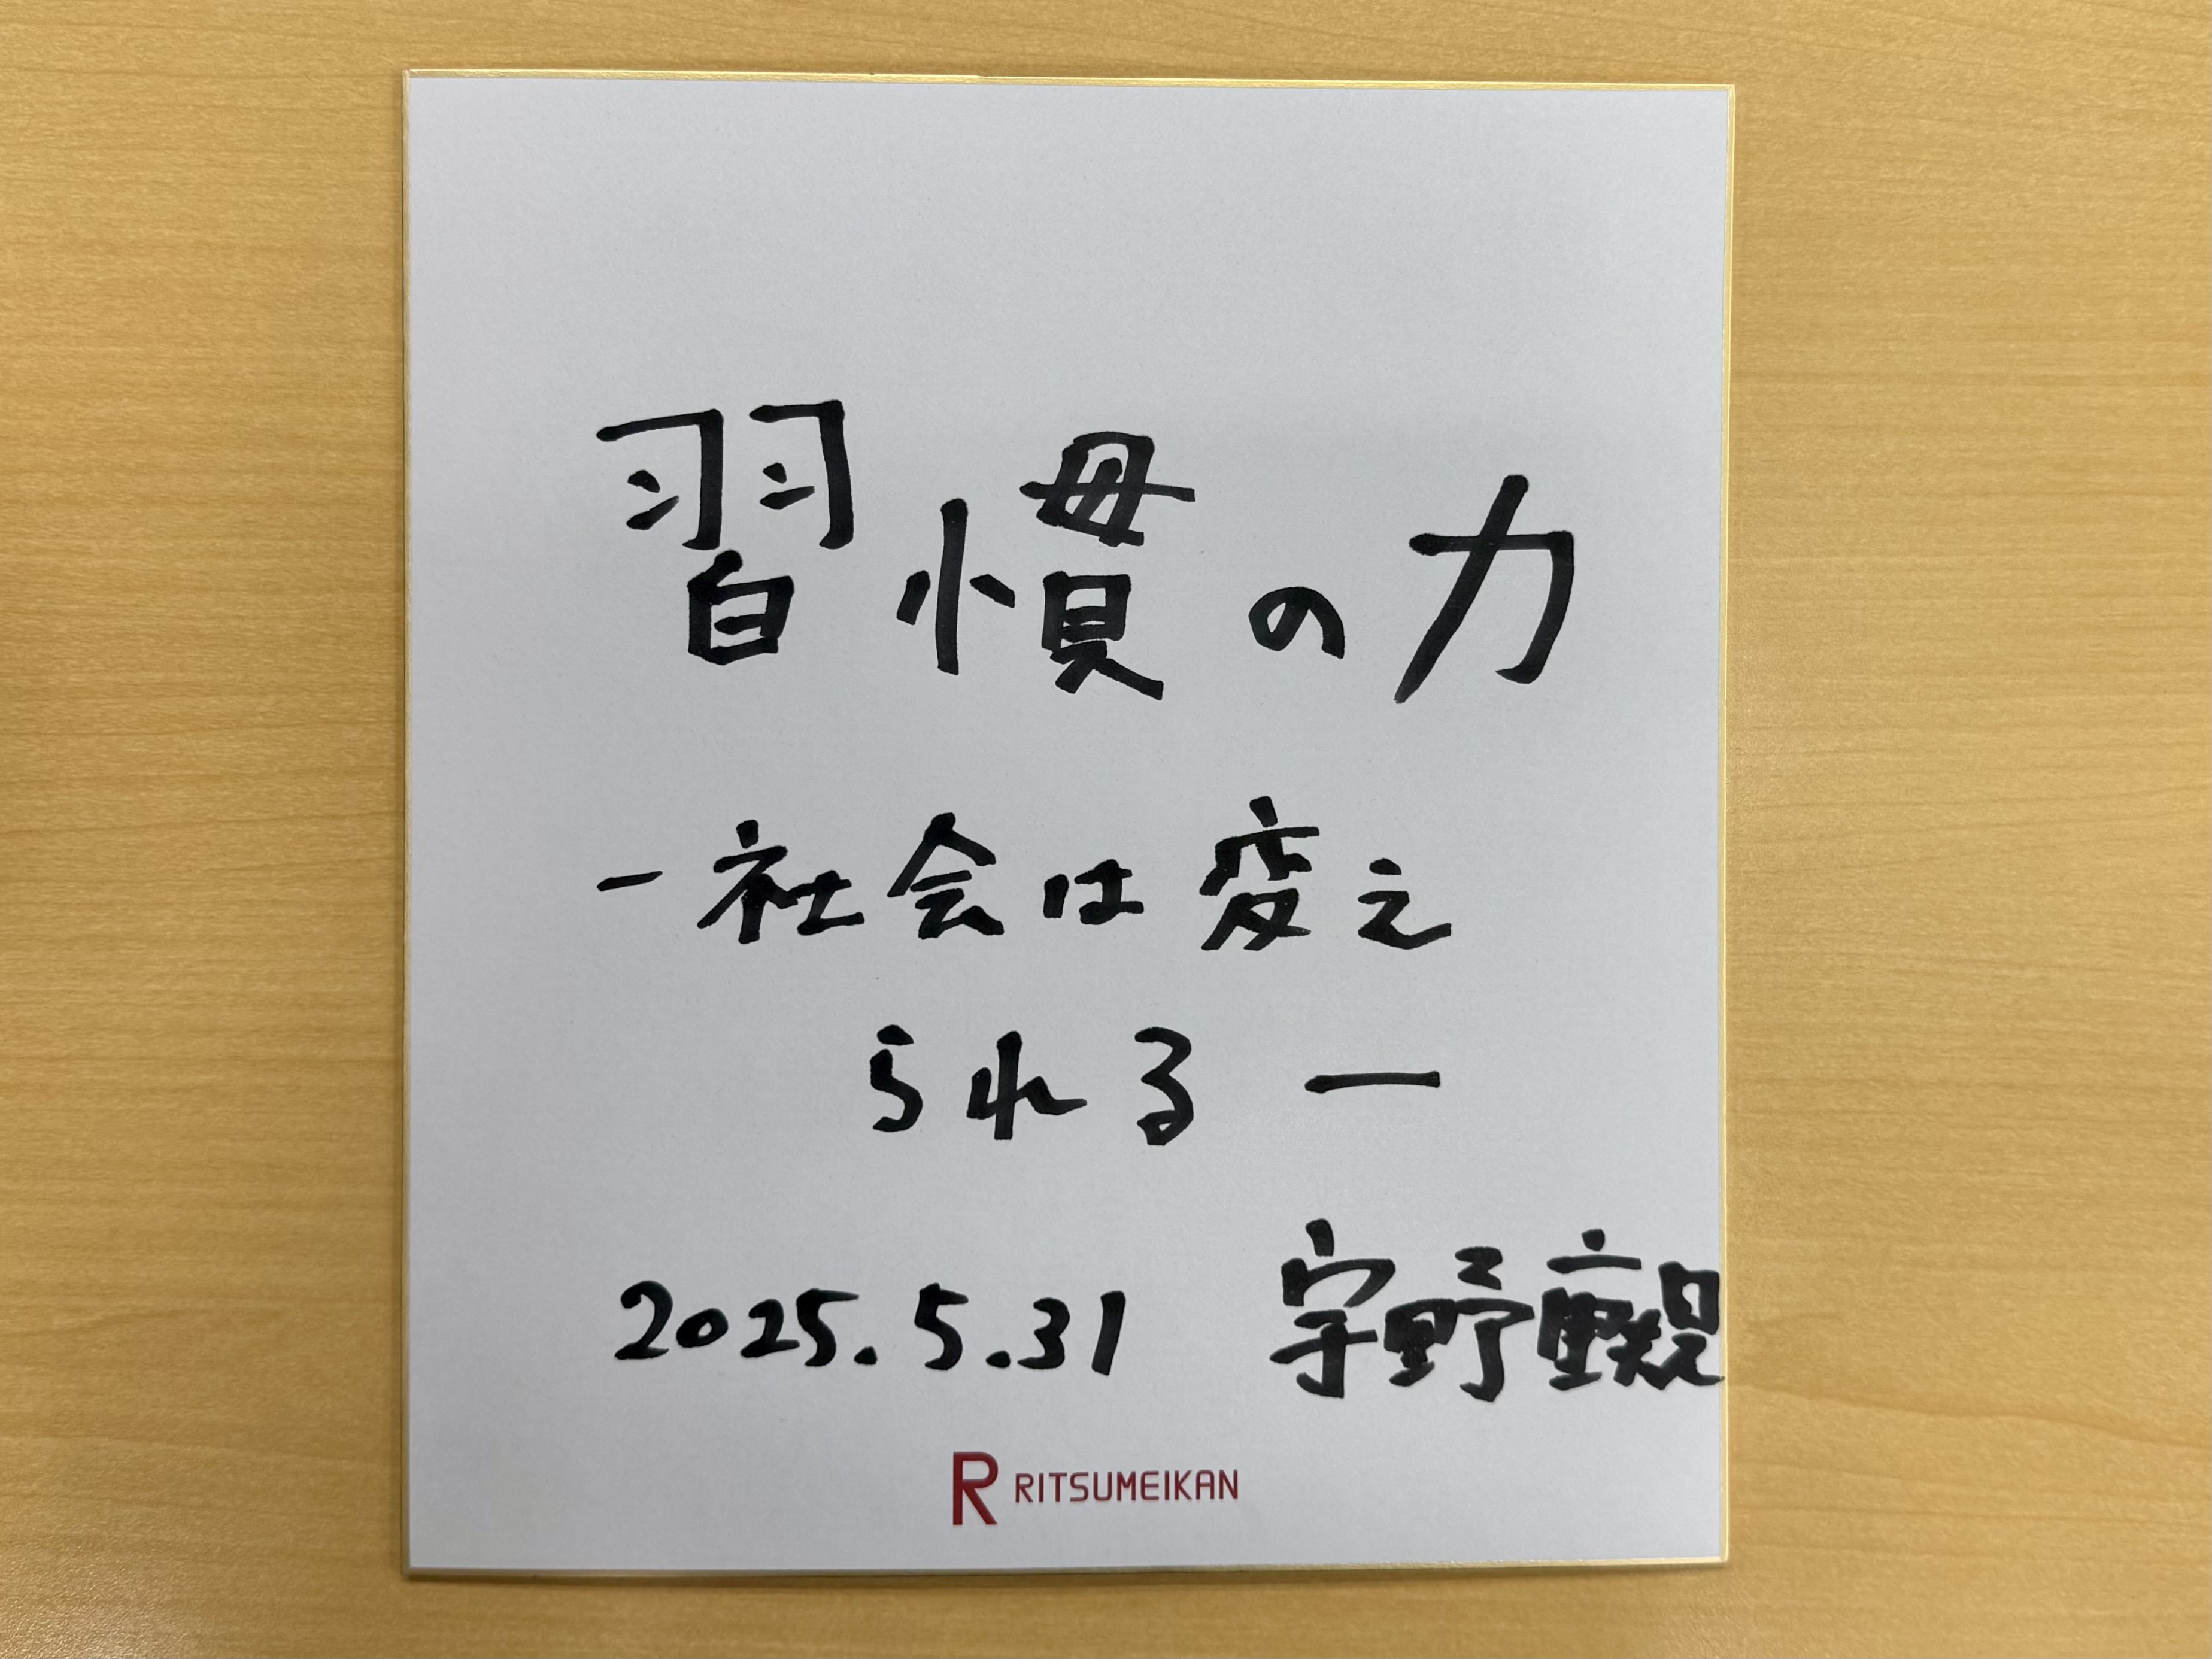 習慣の力
－社会は変え
られる－
2025.5.31 宇野重規
R RITSUMEIKAN